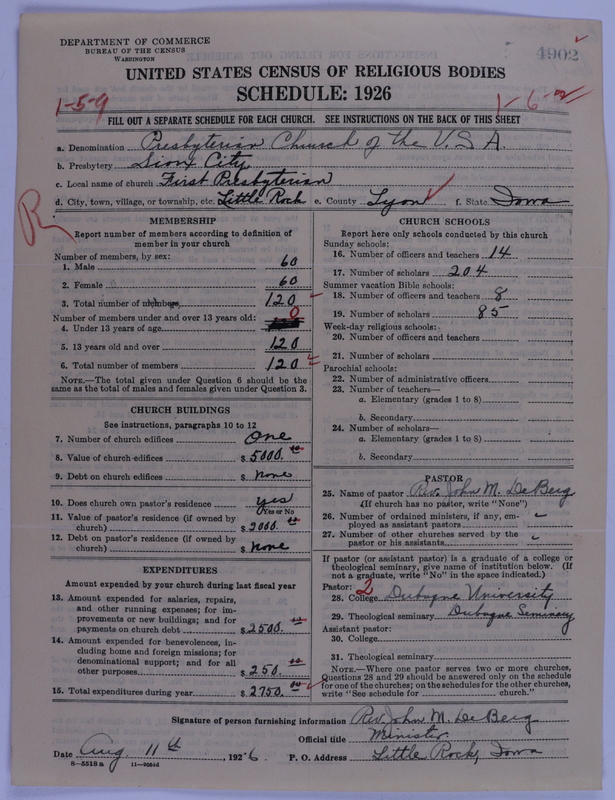 DEPARTMENT OF COMMERCE
BUREAU OF THE CENSUS
WASHINGTON
4902
UNITED STATES CENSUS OF RELIGIOUS BODIES
SCHEDULE: 1926
1-5-9
FILL OUT A SEPARATE SCHEDULE FOR EACH CHURCH. SEE INSTRUCTIONS ON THE BACK OF THIS SHEET
a. Denomination Presbyterian Church of the U.S.A.
b. Presbytery Sioux City
c. Local name of church First Presbyterian
d. City, town, village, or township, etc. Little Rock e. County Lyon f. State Iowa
MEMBERSHIP
Report number of members according to definition of member in your church
Number of members, by sex:
1. Male 60
2. Female 60
3. Total number of members 120
Number of members under and over 13 years old:
4. Under 13 years of age 0
5. 13 years old and over 120
6. Total number of members 120
NOTE.—The total given under Question 6 should be the
same as the total of males and females given under Question 3.
CHURCH BUILDINGS
See instructions, paragraphs 10 to 12
7. Number of church edifices One
8. Value of church edifices $ 5000. 00
9. Debt on church edifices $ None
10. Does church own pastor's residence yes
Yes or No
11. Value of pastor's residence (if owned by
church) $ 2000. 00
12. Debt on pastor's residence (if owned by
church) $ None
EXPENDITURES
Amount expended by your church during last fiscal year
13. Amount expended for salaries, repairs,
and other running expenses; for im-
provements or new buildings; and for
payments on church debt $ 2500. 00
14. Amount expended for benevolences, in-
cluding home and foreign missions; for
denominational support; and for all
other purposes $ 250. 00
15. Total expenditures during year $ 2750. 00
CHURCH SCHOOLS
Report here only schools conducted by this church
Sunday schools:
16. Number of officers and teachers 14
17. Number of scholars 204
Summer vacation Bible schools:
18. Number of officers and teachers 8
19. Number of scholars 85
Week-day religious schools:
20. Number of officers and teachers
21. Number of scholars
Parochial schools:
22. Number of administrative officers
23. Number of teachers—
a. Elementary (grades 1 to 8)
b. Secondary
24. Number of scholars—
a. Elementary (grades 1 to 8)
b. Secondary
PASTOR
25. Name of pastor Rev. John M. DeBerg
(If church has no pastor, write "None")
26. Number of ordained ministers, if any, em-
ployed as assistant pastors
27. Number of other churches served by the
pastor or his assistants
If pastor (or assistant pastor) is a graduate of a college or
theological seminary, give name of institution below. (If
not a graduate, write "No" in the space indicated.)
Pastor: 2
28. College Dubuque University
29. Theological seminary Dubuque Seminary
Assistant pastor:
30. College
31. Theological seminary
NOTE.—Where one pastor serves two or more churches,
Questions 28 and 29 should be answered only on the schedule
for one of the churches; on the schedules for the other churches,
write "See schedule for church."
Signature of person furnishing information Rev. John M. DeBerg
Official title Minister
Date Aug. 11th 1926. P. O. Address Little Rock, Iowa
8—5518 a